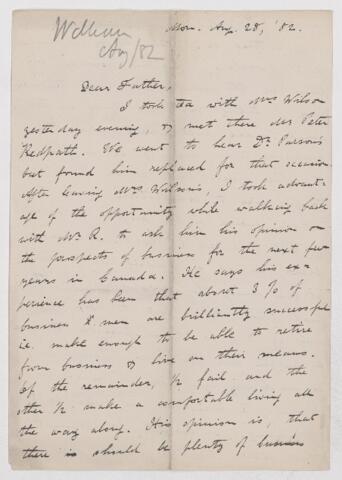 William
Aug/82
Mon. Aug. 28, '82.
Dear Father,
I took tea with Mrs Wilson
yesterday evening, & met there Mr Peter
Redpath. We went to hear Dr Parsons
but found him replaced for that occasion.
After leaving Mrs Wilson's, I took advant-
age of the opportunity while walking back
with Mr R. to ask him his opinion on
the prospects of business for the next few
years in Canada. He says his ex-
perience has been that about 3% of
business men are brilliantly successful
i.e. make enough to be able to retire
from business & live on their means.
Of the remainder, ½ fail and the
other ½ make a comfortable living all
the way along. His opinion is, that
there is should be plenty of business